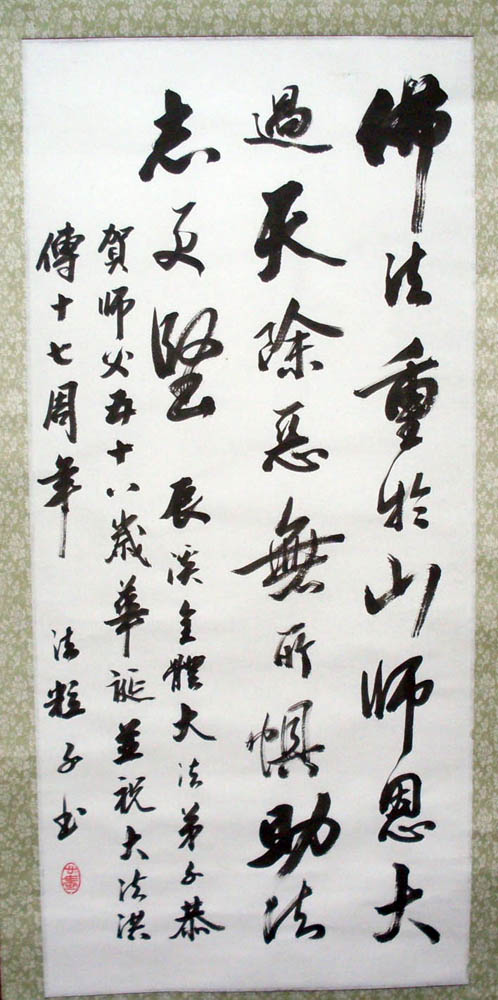 佛法重於山師恩大
過天除惡無所懼助法
志更堅 辰溪全體大法弟子恭
賀師父五十八歲華誕並祝大法洪
傳十七周年 法粒子书